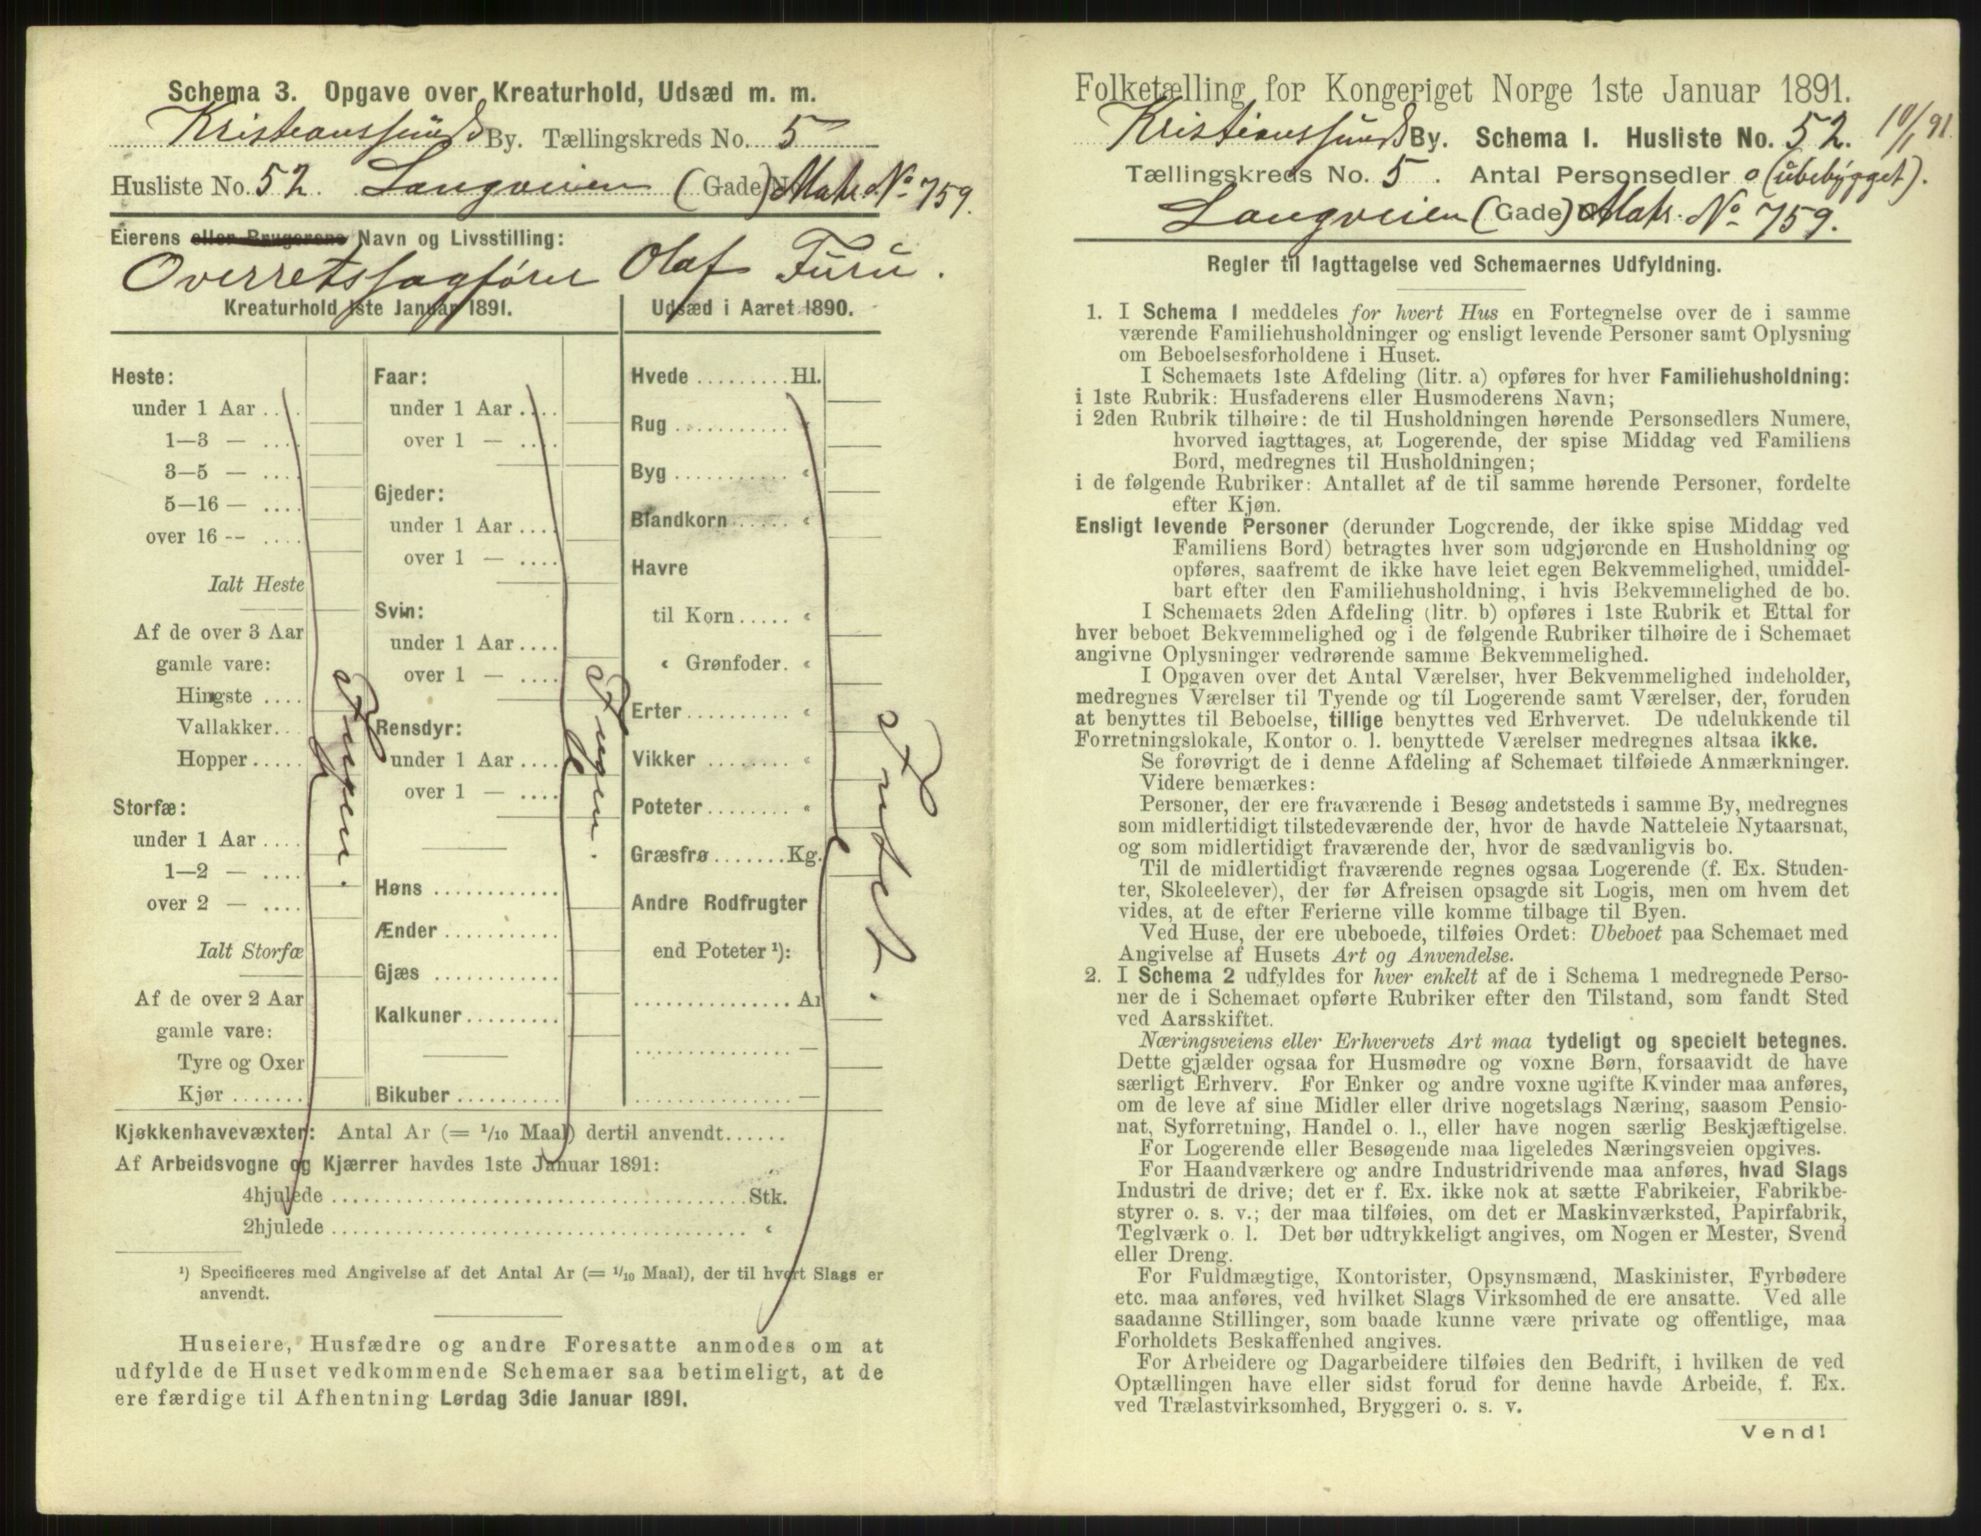 Schema 3. Opgave over Kreaturhold, Udsæd m. m.
Kristianssunds By. Tællingskreds No. 5
Husliste No. 52. Langveien (Gade) Matr. No 759.
Eierens eller Brugerens Navn og Livsstilling:
Overretssagfører Olaf Furu.
Kreaturhold 1ste Januar 1891.
Heste:
under 1 Aar ....
1—3 — ....
3—5 — ....
5—16 — ....
over 16 -- ....
Ialt Heste
Af de over 3 Aar
gamle vare:
Hingste ....
Vallakker...
Hopper.....
Storfæ:
under 1 Aar ....
1—2 — ....
over 2 — ....
Ialt Storfæ
Af de over 2 Aar
gamle vare:
Tyre og Oxer
Kjør .......
Ingen.
Faar:
under 1 Aar ....
over 1 — ....
Gjeder:
under 1 Aar ....
over 1 — ....
Svin:
under 1 Aar ....
over 1 — ....
Rensdyr:
under 1 Aar ....
over 1 — ....
Høns ............
Ænder ...........
Gjæs ............
Kalkuner.........
Bikuber ..........
Ingen.
Udsæd i Aaret 1890.
Hvede .........Hl.
Rug ............ «
Byg ............ «
Blandkorn...... «
Havre
til Korn..... «
« Grønfoder. «
Erter.......... «
Vikker ........ «
Poteter........ «
Græsfrø.......Kg.
Andre Rodfrugter
end Poteter ¹):
...............Ar
............... —
............... —
Intet.
Kjøkkenhavevæxter: Antal Ar (= 1/10 Maal) dertil anvendt......
Af Arbeidsvogne og Kjærrer havdes 1ste Januar 1891:
4hjulede ........................................Stk.
2hjulede ........................................ «
¹) Specificeres med Angivelse af det Antal Ar (= 1/10 Maal), der til hvert Slags er
anvendt.
Huseiere, Husfædre og andre Foresatte anmodes om at
udfylde de Huset vedkommende Schemaer saa betimeligt, at de
ere færdige til Afhentning Lørdag 3die Januar 1891.
Folketælling for Kongeriget Norge 1ste Januar 1891.
Kristianssunds By. Schema I. Husliste No. 52. 10/1 91.
Tællingskreds No. 5. Antal Personsedler 0 (ubebygget).
Langveien (Gade) Matr. No 759.
Regler til Iagttagelse ved Schemaernes Udfyldning.
1. I Schema 1 meddeles for hvert Hus en Fortegnelse over de i samme
værende Familiehusholdninger og ensligt levende Personer samt Oplysning
om Beboelsesforholdene i Huset.
I Schemaets 1ste Afdeling (litr. a) opføres for hver Familiehusholdning:
i 1ste Rubrik: Husfaderens eller Husmoderens Navn;
i 2den Rubrik tilhøire: de til Husholdningen hørende Personsedlers Numere,
hvorved iagttages, at Logerende, der spise Middag ved Familiens
Bord, medregnes til Husholdningen;
i de følgende Rubriker: Antallet af de til samme hørende Personer, fordelte
efter Kjøn.
Ensligt levende Personer (derunder Logerende, der ikke spise Middag ved
Familiens Bord) betragtes hver som udgjørende en Husholdning og
opføres, saafremt de ikke have leiet egen Bekvemmelighed, umiddel-
bart efter den Familiehusholdning, i hvis Bekvemmelighed de bo.
I Schemaets 2den Afdeling (litr. b) opføres i 1ste Rubrik et Ettal for
hver beboet Bekvemmelighed og i de følgende Rubriker tilhøire de i Schemaet
angivne Oplysninger vedrørende samme Bekvemmelighed.
I Opgaven over det Antal Værelser, hver Bekvemmelighed indeholder,
medregnes Værelser til Tyende og til Logerende samt Værelser, der, foruden
at benyttes til Beboelse, tillige benyttes ved Erhvervet. De udelukkende til
Forretningslokale, Kontor o. l. benyttede Værelser medregnes altsaa ikke.
Se forøvrigt de i denne Afdeling af Schemaet tilføiede Anmærkninger.
Videre bemærkes:
Personer, der ere fraværende i Besøg andetsteds i samme By, medregnes
som midlertidigt tilstedeværende der, hvor de havde Natteleie Nytaarsnat,
og som midlertidigt fraværende der, hvor de sædvanligvis bo.
Til de midlertidigt fraværende regnes ogsaa Logerende (f. Ex. Studen-
ter, Skoleelever), der før Afreisen opsagde sit Logis, men om hvem det
vides, at de efter Ferierne ville komme tilbage til Byen.
Ved Huse, der ere ubeboede, tilføies Ordet: Ubeboet paa Schemaet med
Angivelse af Husets Art og Anvendelse.
2. I Schema 2 udfyldes for hver enkelt af de i Schema 1 medregnede Perso-
ner de i Schemaet opførte Rubriker efter den Tilstand, som fandt Sted
ved Aarsskiftet.
Næringsveiens eller Erhvervets Art maa tydeligt og specielt betegnes.
Dette gjælder ogsaa for Husmødre og voxne Børn, forsaavidt de have
særligt Erhverv. For Enker og andre voxne ugifte Kvinder maa anføres,
om de leve af sine Midler eller drive nogetslags Næring, saasom Pensio-
nat, Syforretning, Handel o. l., eller have nogen særlig Beskjæftigelse.
For Logerende eller Besøgende maa ligeledes Næringsveien opgives.
For Haandværkere og andre Industridrivende maa anføres, hvad Slags
Industri de drive; det er f. Ex. ikke nok at sætte Fabrikeier, Fabrikbe-
styrer o. s. v.; der maa tilføies, om det er Maskinværksted, Papirfabrik,
Teglværk o. l. Det bør udtrykkeligt angives, om Nogen er Mester, Svend
eller Dreng.
For Fuldmægtige, Kontorister, Opsynsmænd, Maskinister, Fyrbødere
etc. maa anføres, ved hvilket Slags Virksomhed de ere ansatte. Ved alle
saadanne Stillinger, som baade kunne være private og offentlige, maa
Forholdets Beskaffenhed angives.
For Arbeidere og Dagarbeidere tilføies den Bedrift, i hvilken de ved
Optællingen have eller sidst forud for denne havde Arbeide, f. Ex.
ved Trælastvirksomhed, Bryggeri o. s. v.
Vend!